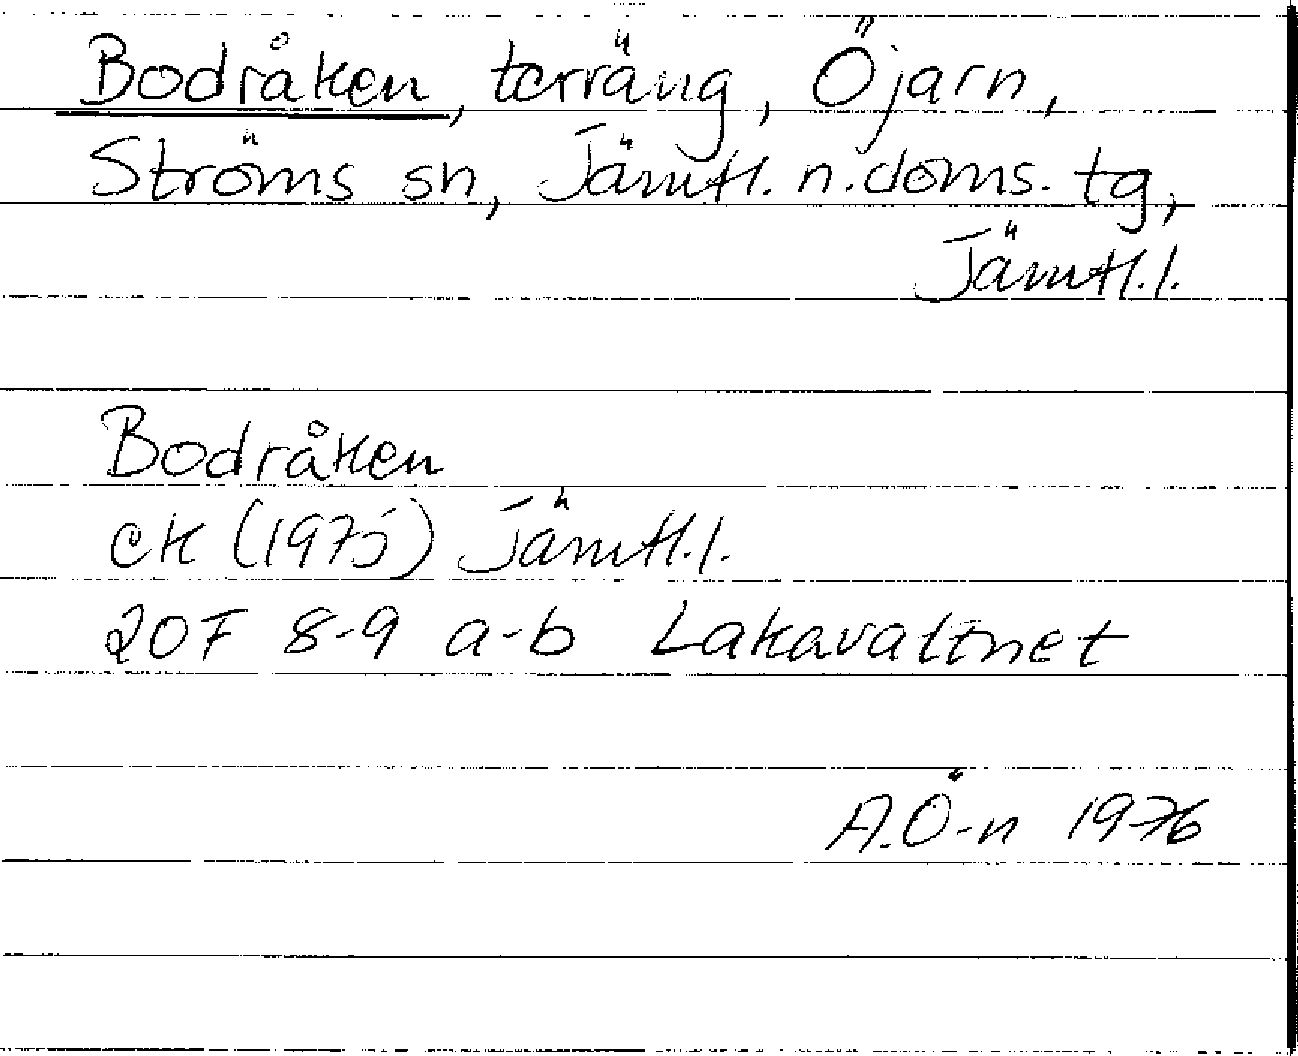 Bodråken, terräng, Öjarn,
Ströms sn, Jämtl. n. doms. tg,
Jämtl. l.
Bodråken
ek (1975) Jämtl. l.
20F 8-9 a-b Lakavattnet
A.Ö-n 1976